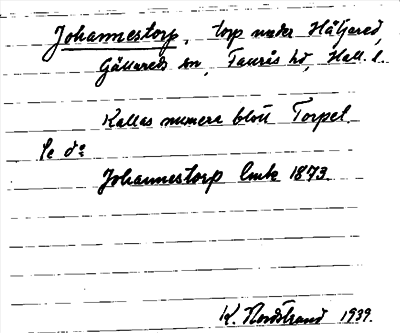 Johannestorp, torp under Häljared,
Gällareds sn, Faurås hd, Hall. l.
Kallas numera blott Torpet.
Se do
Johannestorp lmk 1873.
K. Nordstrand 1939.